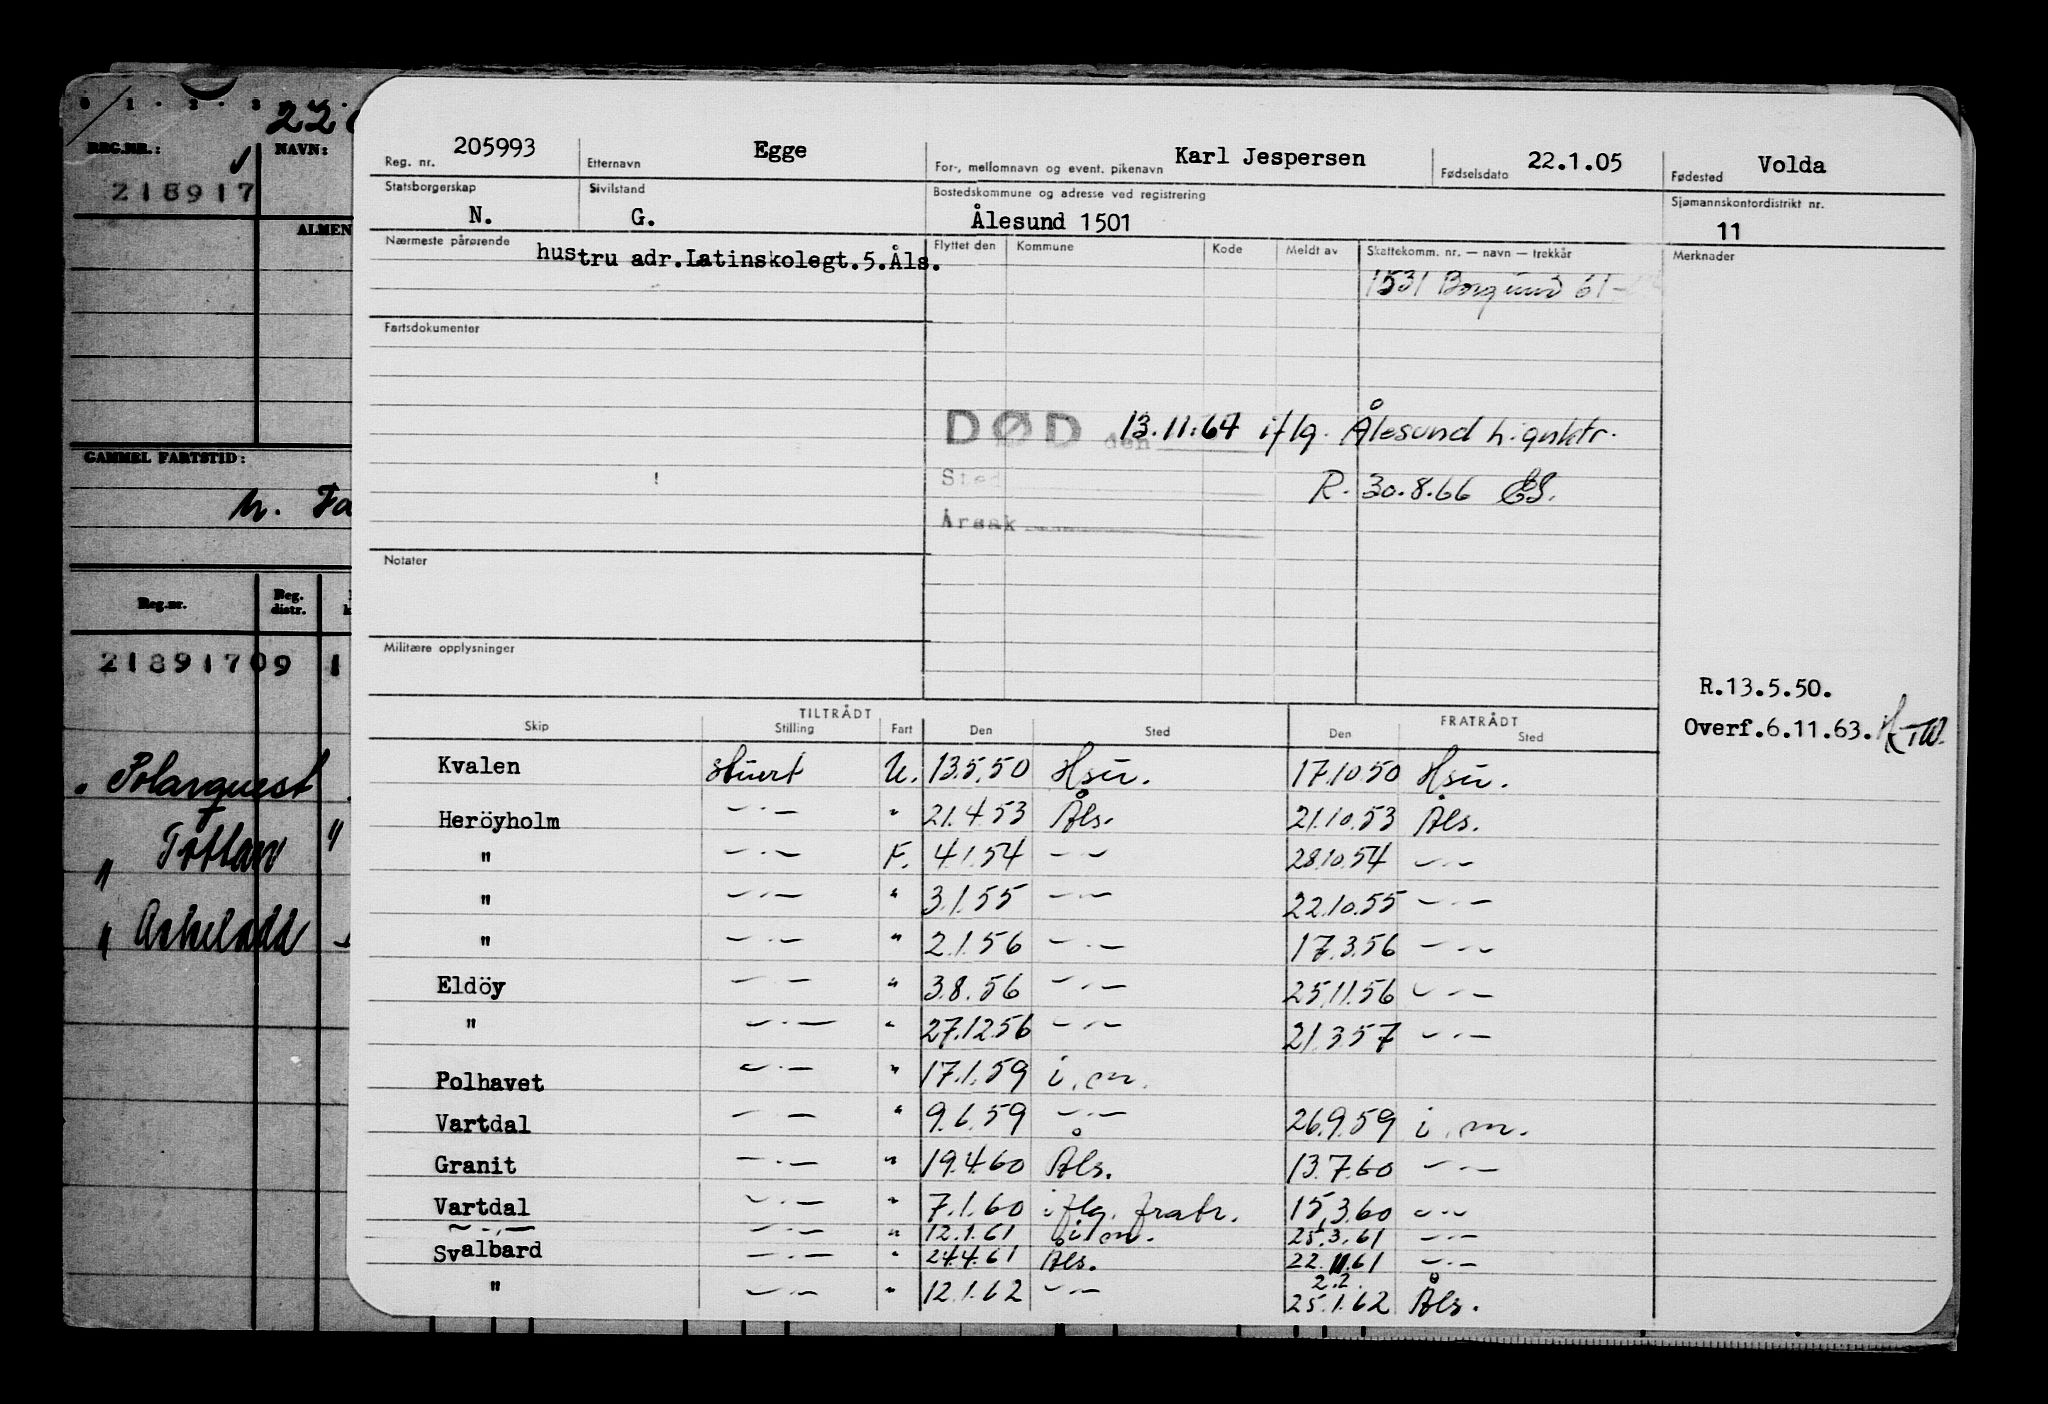 0 1 · 2 · 3 ·
22
REG.NR.: NAVN:
218917
ALMEN
GAMMEL FARTSTID:
Reg.nr. Reg. distr.
21891709 1
" Polarquest
" Tottan "
" Askeladd
205993 Egge Karl Jespersen 22.1.05 Volda
Reg. nr. Etternavn For-, mellomnavn og event. pikenavn Fødselsdato Fødested
Statsborgerskap Sivilstand Bostedskommune og adresse ved registrering Sjømannskontordistrikt nr.
N. G. Ålesund 1501 11
Nærmeste pårørende Flyttet den Kommune Kode Meldt av Skattekomm. nr. — navn — trekkår Merknader
hustru adr.Latinskolegt.5.Åls.
1531 Borgund 61-
Fartsdokumenter
DØD den 13.11.64 iflg. Ålesund l.gnktr.
Sted R. 30.8.66
Årsak
Notater
Militære opplysninger
R.13.5.50.
Overf.6.11.63.
TILTRÅDT FRATRÅDT
Skip Stilling Fart Den Sted Den Sted
Kvalen stuert U. 13.5.50 Hsu. 17.10.50 Hsu.
Heröyholm —·— " 21.4.53 Åls. 21.10.53 Åls.
" —·— F. 4.1.54 —·— 28.10.54 —·—
" —·— " 3.1.55 —·— 22.10.55 —·—
" —·— " 2.1.56 —·— 17.3.56 —·—
Eldöy —·— " 3.8.56 —·— 25.11.56 —·—
" —·— " 27.12.56 —·— 21.3.57 —·—
Polhavet —·— " 17.1.59 i.m.
Vartdal —·— " 9.6.59 —·— 26.9.59 i.m.
Granit —·— " 19.4.60 Åls. 13.7.60 —·—
Vartdal —·— " 7.1.60 iflg. fratr. 15.3.60 —·—
—·— —·— " 12.1.61 i.m. 25.3.61 —·—
Svalbard —·— " 24.4.61 Åls. 22.11.61 —·—
2.2.
" —·— " 12.1.62 —·— 25.1.62 Åls.